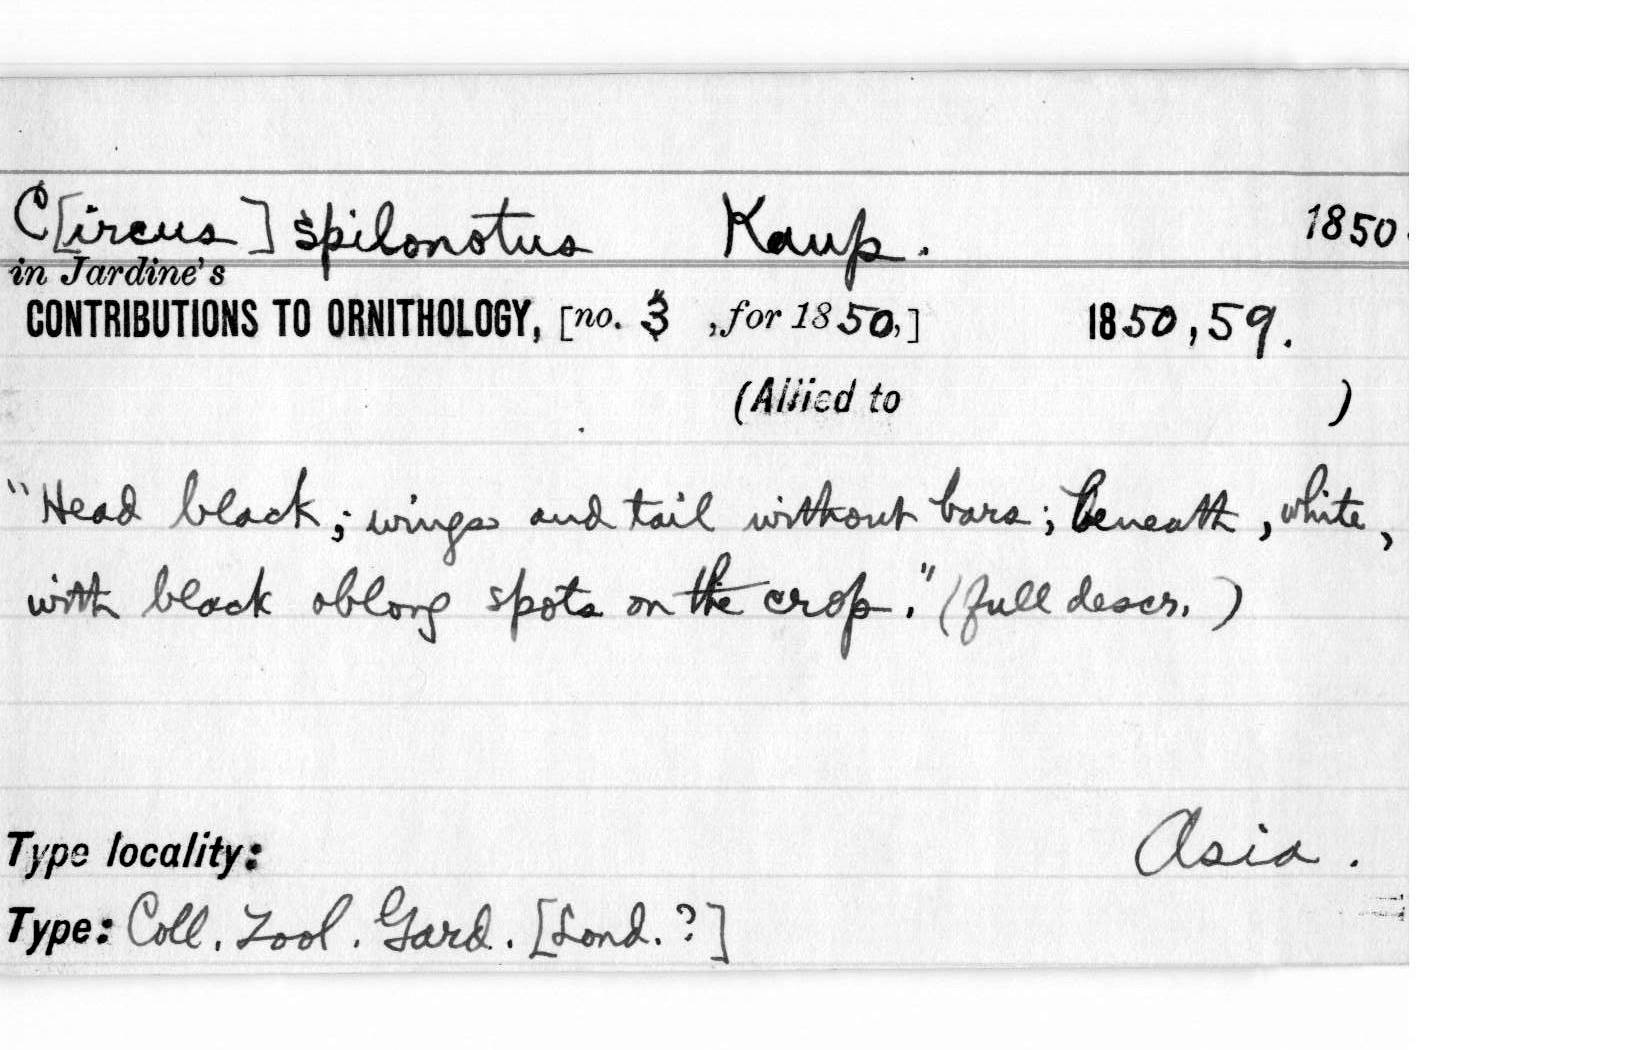 C[ircus] spilonotus Kaup. 1850.
in Jardine's
CONTRIBUTIONS TO ORNITHOLOGY, [no. 3 , for 1850,] 1850, 59.
(Allied to )
"Head black; wings and tail without bars; beneath, white,
with black oblong spots on the crop." (full descr.)
Type locality: Asia.
Type: Coll. Zool. Gard. [Lond.?]